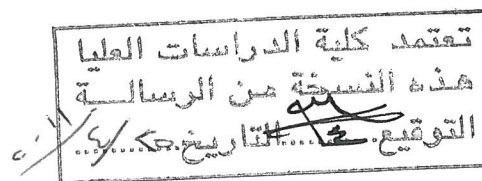 تعتمد كلية الدراسات العليا
هذه النسخة من الرسالـــة
التوقيع.......التاريخ.......